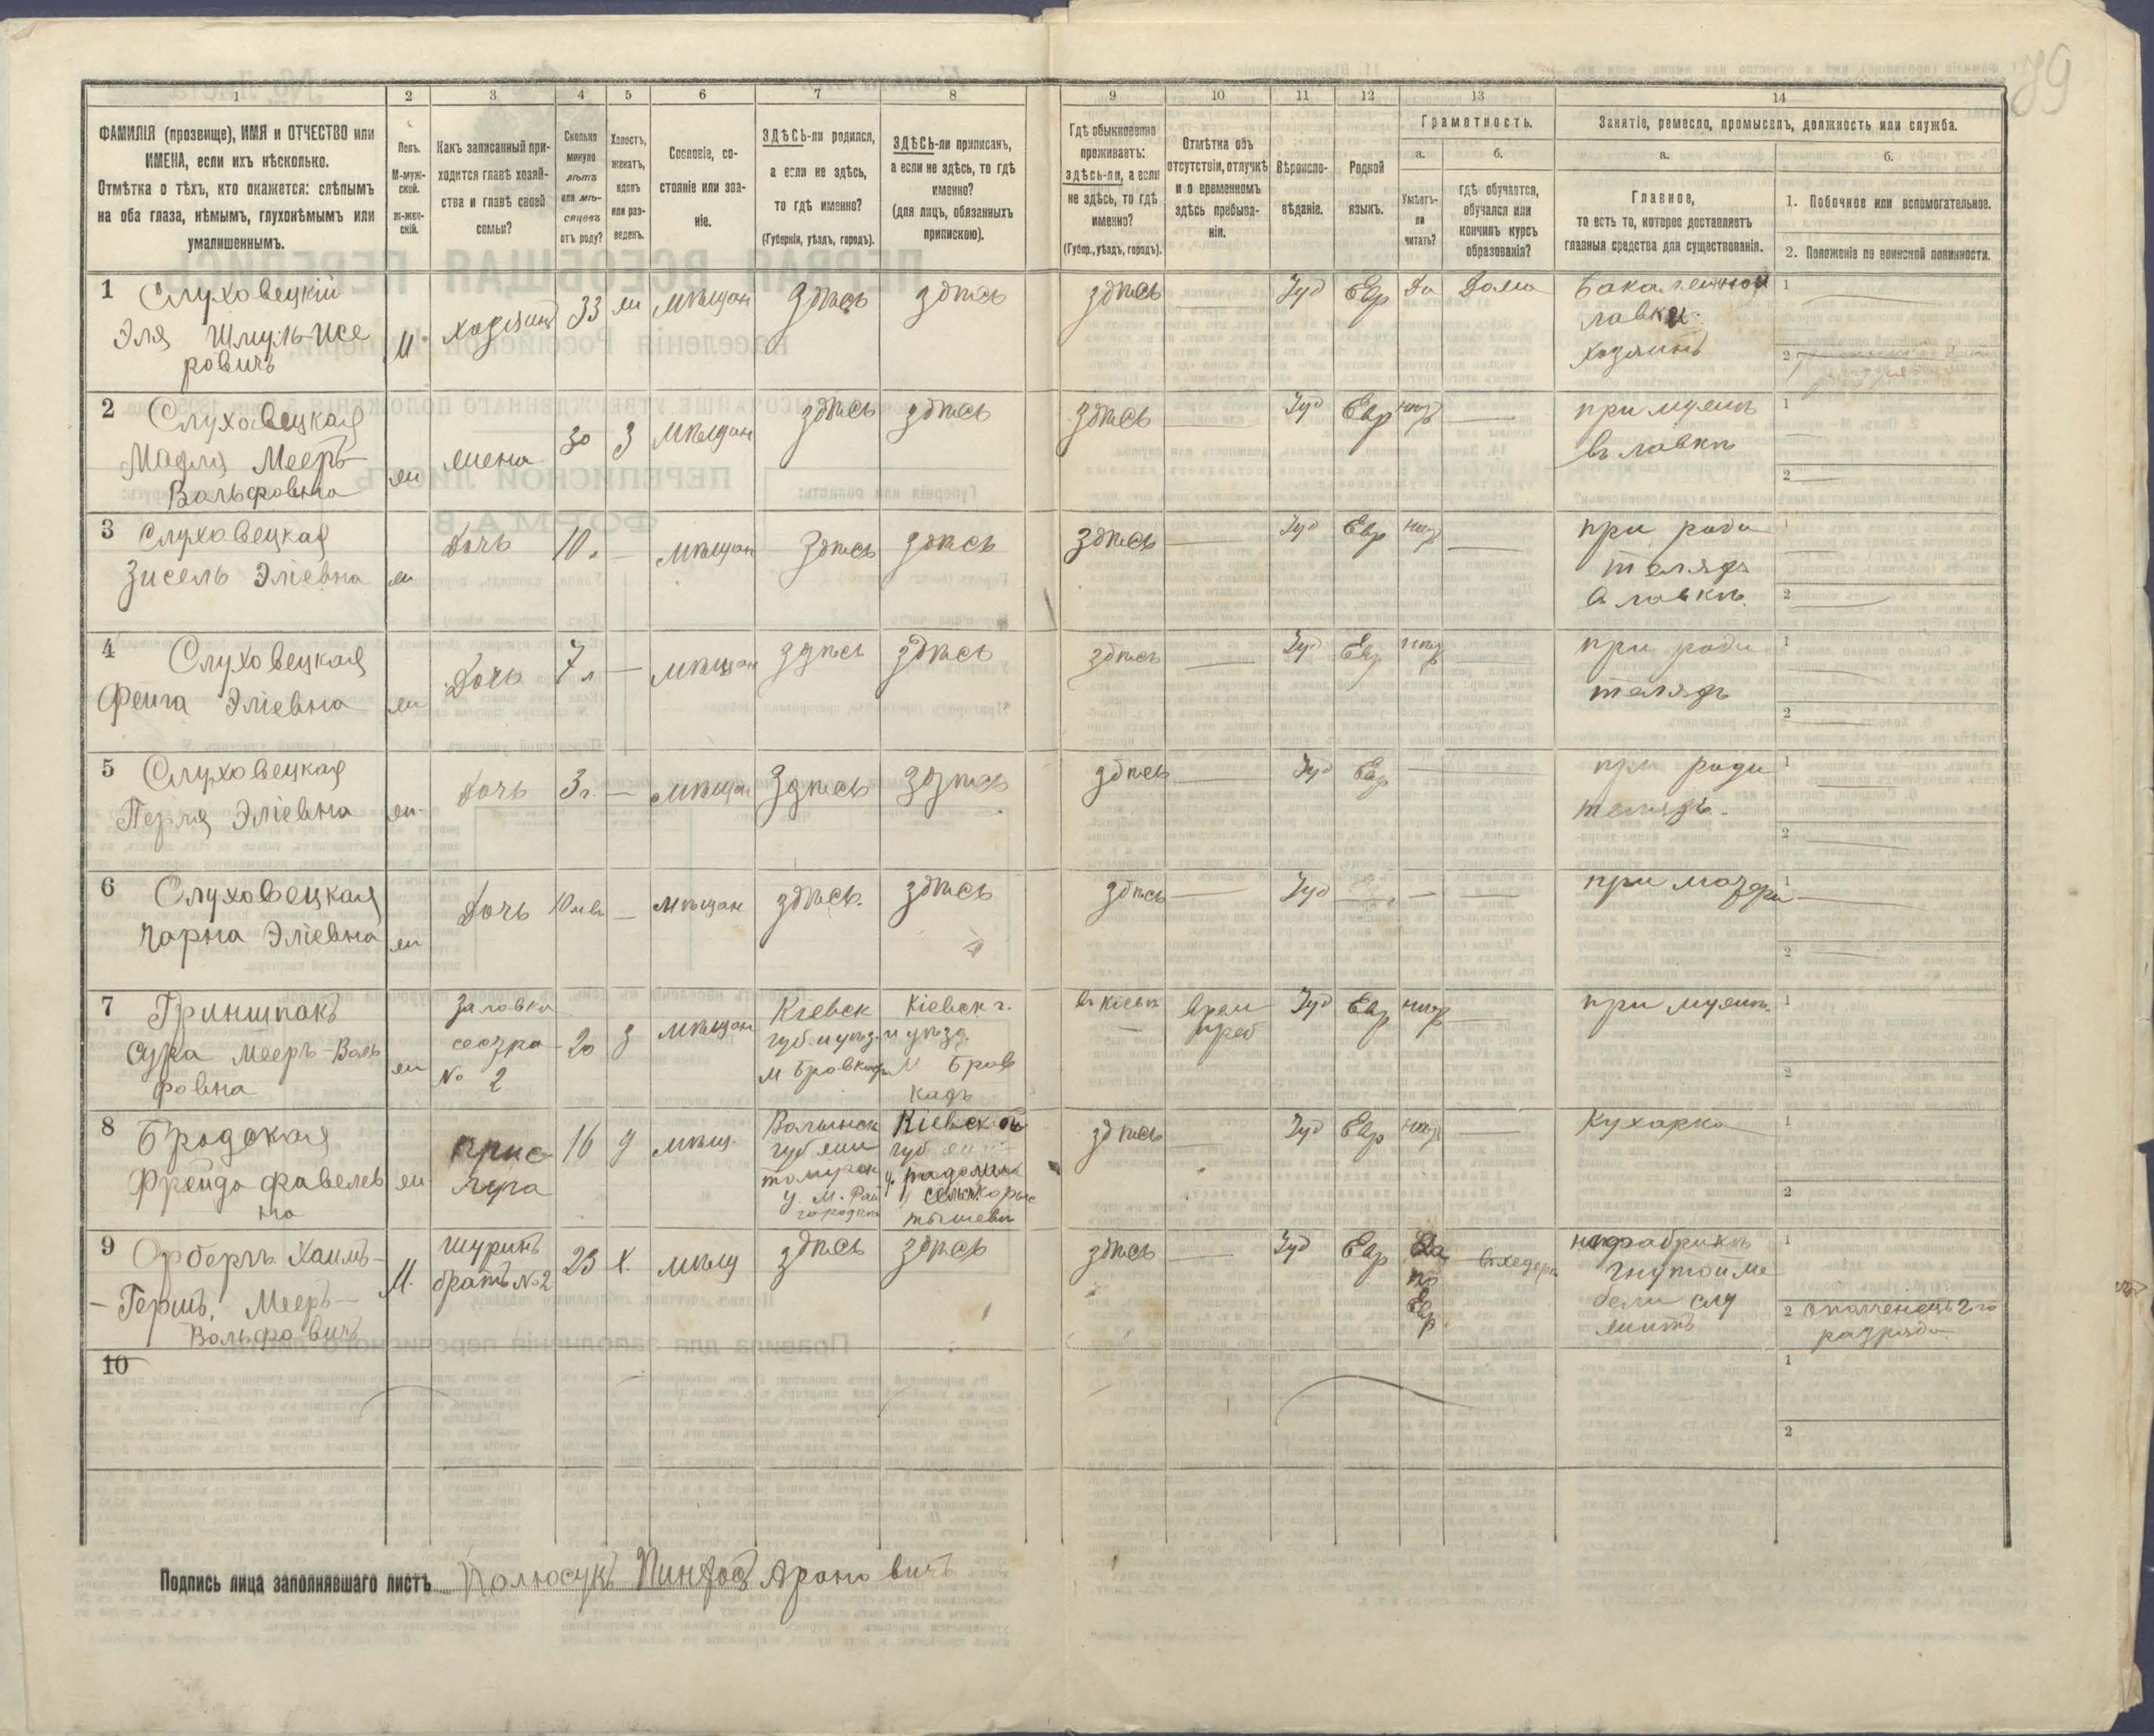 79
1 2 3 4 5 6 7 8 9 10 11 12 13 14
ФАМИЛІЯ (прозвище), ИМЯ и ОТЧЕСТВО или
ИМЕНА, если ихъ нѣсколько.
Отмѣтка о тѣхъ, кто окажется: слѣпымъ
на оба глаза, нѣмымъ, глухонѣмымъ или
умалишеннымъ.
Полъ.
М-муж-
ской.
Ж-жен-
скій.
Какъ записанный при-
ходится главѣ хозяй-
ства и главѣ своей
семьи?
Сколько
минуло
лѣтъ
или мѣ-
сяцевъ
отъ роду?
Холостъ,
женатъ,
вдовъ
или раз-
веденъ.
Сословіе, со-
стояніе или зва-
ніе.
ЗДѢСЬ-ли родился,
а если не здѣсь,
то гдѣ именно?
(Губернія, уѣздъ, городъ).
ЗДѢСЬ-ли приписанъ,
а если не здѣсь, то гдѣ
именно?
(для лицъ, обязанныхъ
припискою).
Гдѣ обыкновенно
проживаетъ:
здѣсь-ли, а если
не здѣсь, то гдѣ
именно?
(Губер., уѣздъ, городъ).
Отмѣтка объ
отсутствіи, отлучкѣ
и о временномъ
здѣсь пребыва-
ніи.
Вѣроиспо-
вѣданіе.
Родной
языкъ.
Грамотность.
а.
Умѣетъ-
ли
читать?
б.
гдѣ обучается,
обучался или
кончилъ курсъ
образованія?
Занятіе, ремесло, промыселъ, должность или служба.
а.
Главное,
то есть то, которое доставляетъ
главныя средства для существованія.
б.
1. Побочное или вспомогательное.
2. Положеніе по воинской повинности.
1 Слуховецкій
Эля Шмуль-Исе
ровичъ
М
хозяинъ
33
ж
мѣщан
здѣсь
здѣсь
здѣсь
Іуд
Евр
Да
Дома
Бакалейной
лавки
хозяинъ
1
2
2 Слуховецкая
Маля Мееръ-
Вольфовна
ж
жена
30
З
мѣщан
здѣсь
здѣсь
здѣсь
Іуд
Евр
нѣтъ
при мужѣ
въ лавкѣ
1
2
3 Слуховецкая
Зисель Эліевна
ж
Дочь
10 л.
мѣщан
здѣсь
здѣсь
здѣсь
Іуд
Евр
нѣтъ
при роди
теляхъ
в лавкѣ
1
2
4 Слуховецкая
Фейга Эліевна
ж
Дочь
7 л
мѣщан
здѣсь
здѣсь
здѣсь
Іуд
Евр
нѣтъ
при роди
теляхъ
1
2
5 Слуховецкая
Перля Эліевна
ж
Дочь
3 г.
мѣщан
здѣсь
здѣсь
здѣсь
Іуд
Евр
при роди
теляхъ
1
2
6 Слуховецкая
Чарна Эліевна
ж
Дочь
10 мѣ
мѣщан
здѣсь
здѣсь
здѣсь
Іуд
при матери
1
2
7 Гриншпакъ
Сура Мееръ-Воль
фовна
ж
Заловка
сестра
№ 2
20
З
мѣщан
Кіевск
губ. и уѣз.
м Бровках
Кіевск г.
и уѣзд.
М Бров
кахъ
въ Кіевѣ
врем
преб
Іуд
Евр
нѣтъ
при мужѣ
1
2
8 Бродская
Фрейда Фавелев
на
ж
прис
луга
16
д
мѣщ.
Волынск
губ жи
томирск
у. м. Рай
городкѣ
Кіевской
губ
у. радомыс
тышевѣ
здѣсь
Іуд
Евр
нѣтъ
Кухарка
1
2
9 Орберъ Хаимъ-
Гершъ Мееръ-
Вольфовичъ
М.
шуринъ
братъ № 2
23
х.
мѣщ
здѣсь
здѣсь
здѣсь
Іуд
Евр
Да
по
Евр
в хедерѣ
на фабрикѣ
гнутой ме
бели слу
житъ
1
2 ополченецъ 2го
разряда
10
1
2
Подпись лица заполнявшаго листъ Полюсукъ Пинхосъ Ароновичъ